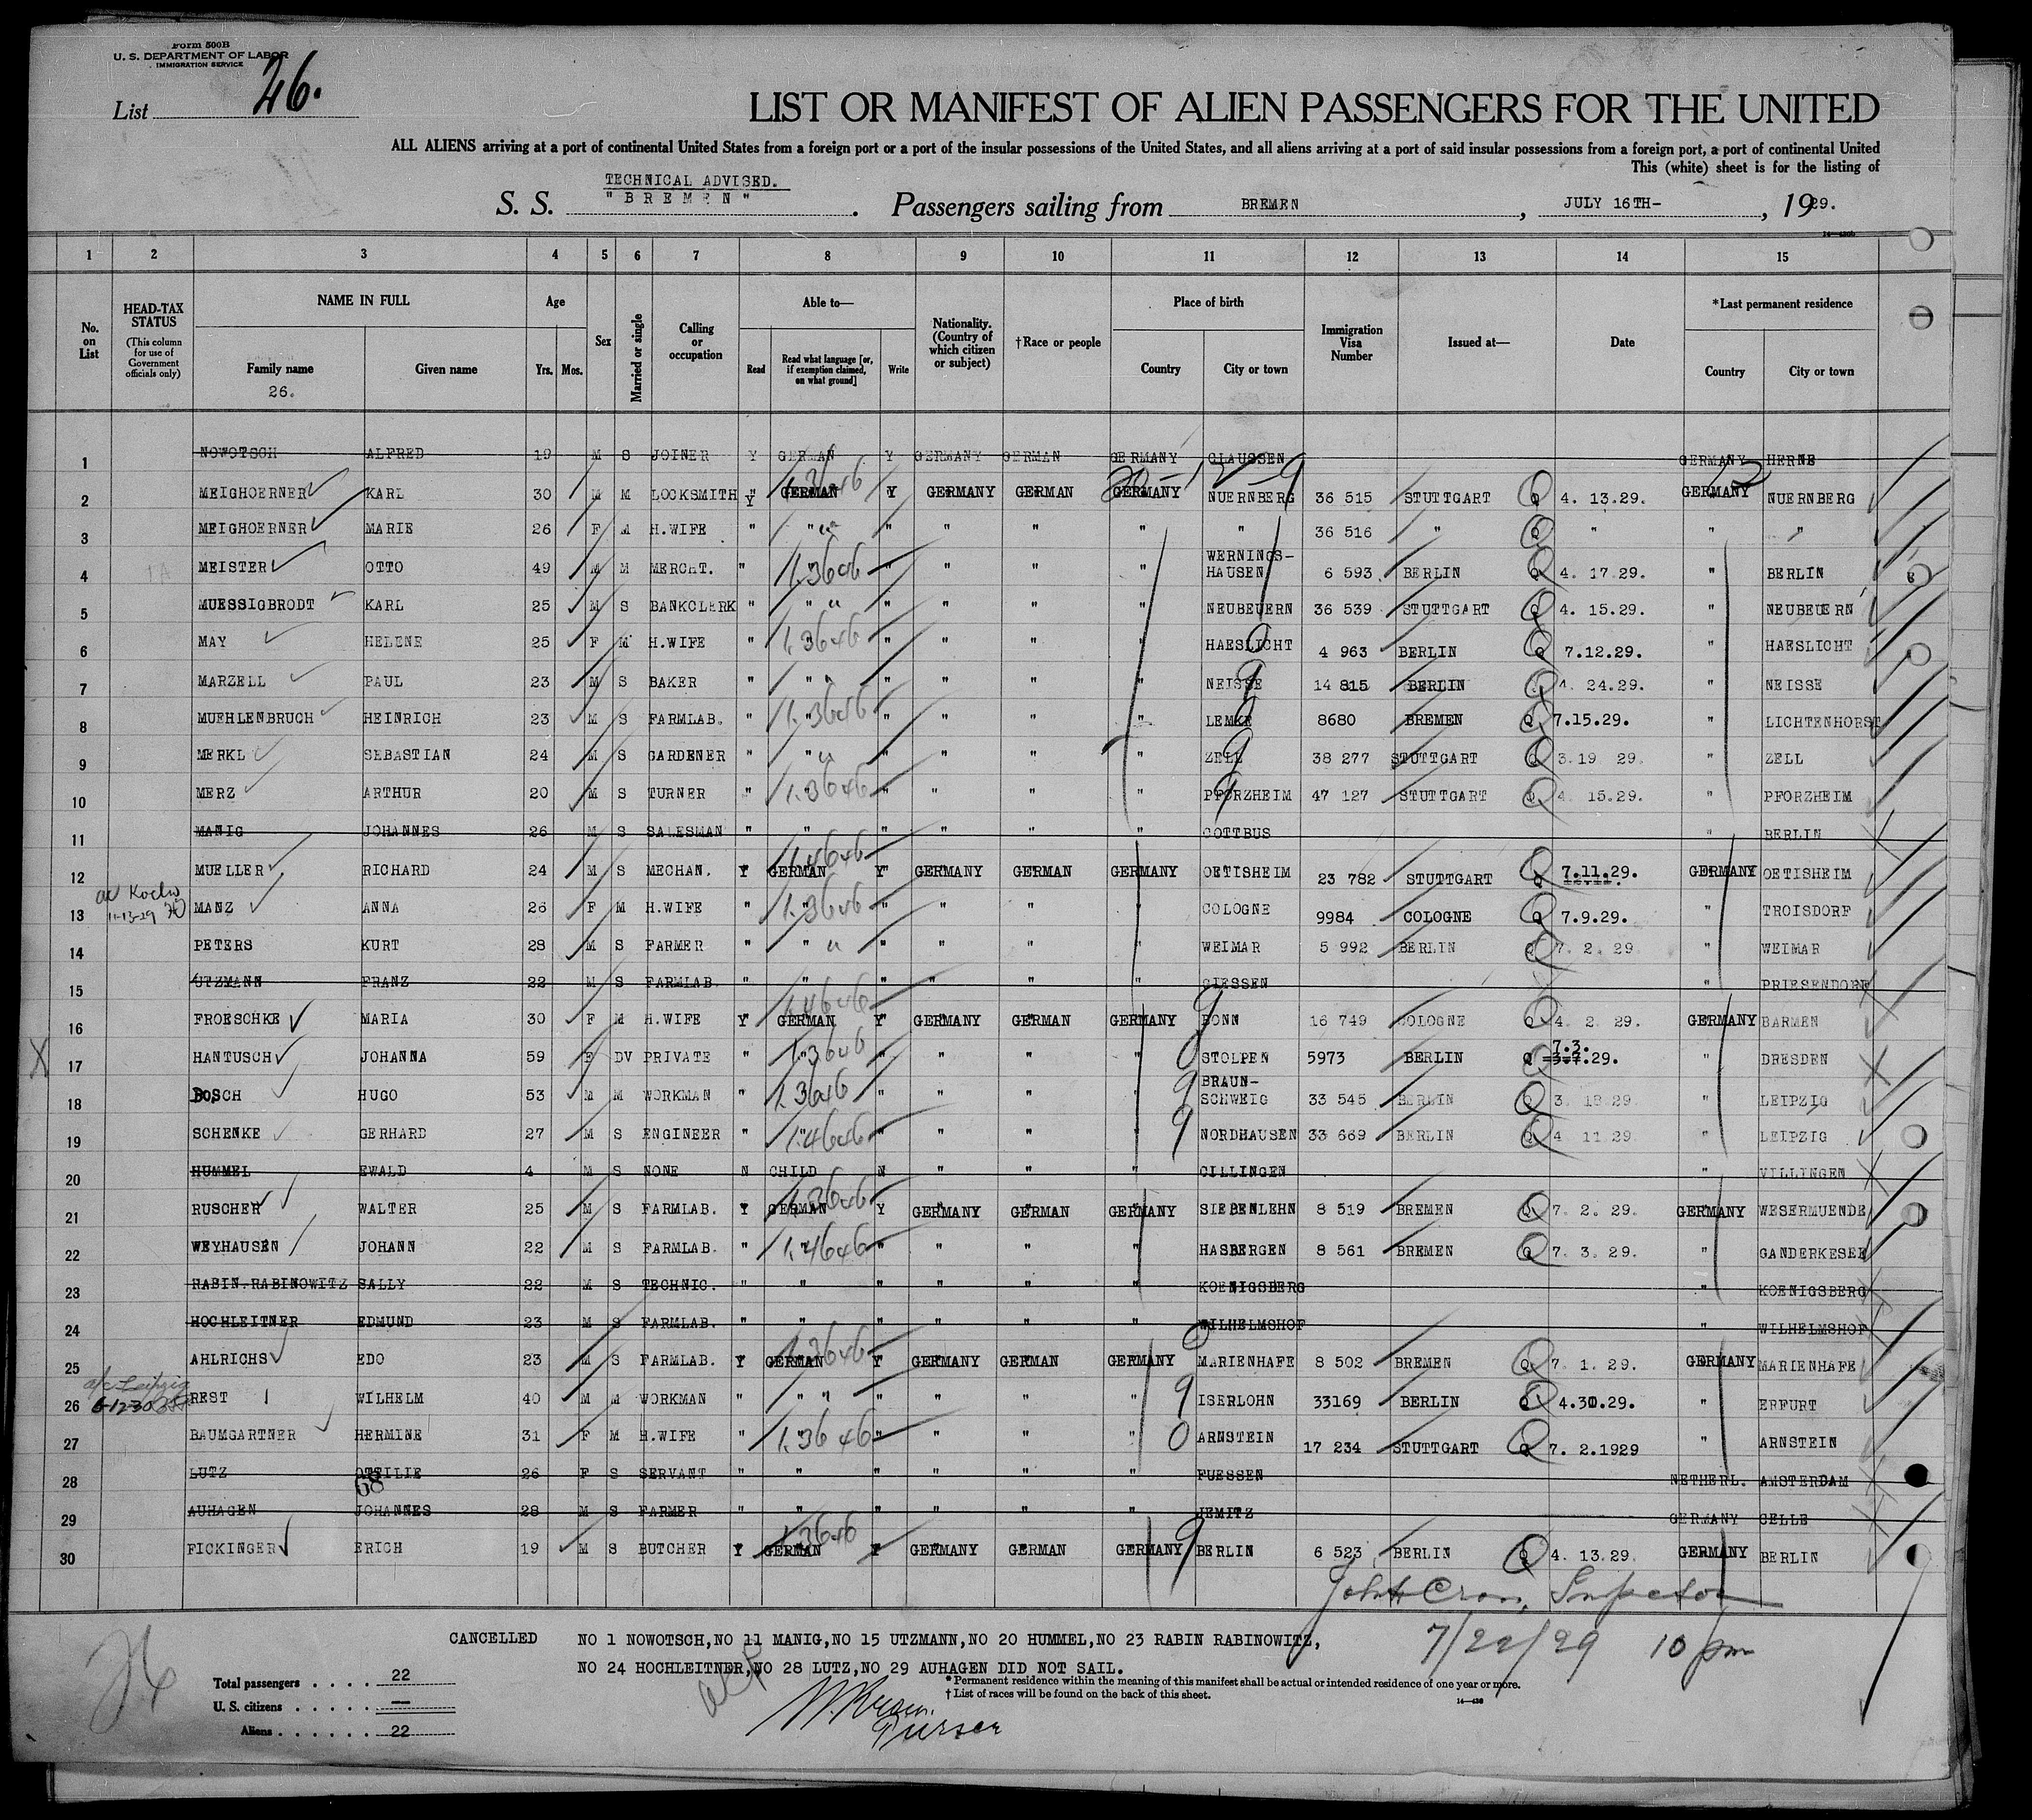 Form 500B
U. S. DEPARTMENT OF LABOR
IMMIGRATION SERVICE
List 26.
LIST OR MANIFEST OF ALIEN PASSENGERS FOR THE UNITED
ALL ALIENS arriving at a port of continental United States from a foreign port or a port of the insular possessions of the United States, and all aliens arriving at a port of said insular possessions from a foreign port, a port of continental United
This (white) sheet is for the listing of
TECHNICAL ADVISED.
S. S. "BREMEN". Passengers sailing from BREMEN, JULY 16TH-, 1929.
1 2 3 4 5 6 7 8 9 10 11 12 13 14 15
No. on List
HEAD-TAX STATUS (This column for use of Government officials only)
NAME IN FULL Family name Given name
26.
Age Yrs. Mos.
Sex
Married or single
Calling or occupation
Able to— Read Read what language [or, if exemption claimed, on what ground] Write
Nationality. (Country of which citizen or subject)
†Race or people
Place of birth Country City or town
Immigration Visa Number
Issued at—
Date
*Last permanent residence Country City or town
1 NOWOTSCH ALFRED 19 M S JOINER Y GERMAN Y GERMANY GERMAN GERMANY CLAUSSEN GERMANY HERNE
2 MEIGHOERNER KARL 30 M M LOCKSMITH Y GERMAN Y GERMANY GERMAN GERMANY NUERNBERG 36 515 STUTTGART Q 4. 13.29. GERMANY NUERNBERG
3 MEIGHOERNER MARIE 26 F M H.WIFE " " " " " " " 36 516 " Q " " "
4 MEISTER OTTO 49 M M MERCHT. " " " " " " WERNINGS-HAUSEN 6 593 BERLIN Q 4. 17.29. " BERLIN
5 MUESSIGBRODT KARL 25 M S BANKCLERK " " " " " " NEUBEUERN 36 539 STUTTGART Q 4. 15.29. " NEUBEUERN
6 MAY HELENE 25 F M H.WIFE " " " " " " HAESLICHT 4 963 BERLIN Q 7.12.29. " HAESLICHT
7 MARZELL PAUL 23 M S BAKER " " " " " " NEISSE 14 815 BERLIN Q 4. 24.29. " NEISSE
8 MUEHLENBRUCH HEINRICH 23 M S FARMLAB. " " " " " " LEMKE 8680 BREMEN Q 7.15.29. " LICHTENHORST
9 MERKL SEBASTIAN 24 M S GARDENER " " " " " " ZELL 38 277 STUTTGART Q 3.19 29. " ZELL
10 MERZ ARTHUR 20 M S TURNER " " " " " " PFORZHEIM 47 127 STUTTGART Q 4. 15.29. " PFORZHEIM
11 MANIG JOHANNES 26 M S SALESMAN " " " " " " COTTBUS " BERLIN
12 MUELLER RICHARD 24 M S MECHAN. Y GERMAN Y GERMANY GERMAN GERMANY OETISHEIM 23 782 STUTTGART Q 7.11.29. GERMANY OETISHEIM
11-13-29
13 MANZ ANNA 26 F M H.WIFE " " " " " " COLOGNE 9984 COLOGNE Q 7.9.29. " TROISDORF
14 PETERS KURT 28 M S FARMER " " " " " " WEIMAR 5 992 BERLIN Q 7. 2. 29. " WEIMAR
15 UTZMANN FRANZ 22 M S FARMLAB. " " " " " " GIESSEN " PRIESENDORF
16 FROESCHKE MARIA 30 F M H.WIFE Y GERMAN Y GERMANY GERMAN GERMANY BONN 16 749 COLOGNE Q 4. 2. 29. GERMANY BARMEN
X 17 HANTUSCH JOHANNA 59 F DV PRIVATE " " " " " " STOLPEN 5973 BERLIN Q 7.3.29. " DRESDEN
18 BOSCH HUGO 53 M M WORKMAN " " " " " " BRAUN-SCHWEIG 33 545 BERLIN Q 3. 18.29. " LEIPZIG
19 SCHENKE GERHARD 27 M S ENGINEER " " " " " " NORDHAUSEN 33 669 BERLIN Q 4. 11 29. " LEIPZIG
20 HUMMEL EWALD 4 M S NONE N CHILD N " " " CILLINGEN " VILLINGEN
21 RUSCHER WALTER 25 M S FARMLAB. Y GERMAN Y GERMANY GERMAN GERMANY SIEBENLEHN 8 519 BREMEN Q 7. 2. 29. GERMANY WESERMUENDE
22 WEYHAUSEN JOHANN 22 M S FARMLAB. " " " " " " HASBERGEN 8 561 BREMEN Q 7. 3. 29. " GANDERKESEE
23 RABIN-RABINOWITZ SALLY 22 M S TECHNIC. " " " " " " KOENIGSBERG " KOENIGSBERG
24 HOCHLEITNER EDMUND 23 M S FARMLAB. " " " " " " WILHELMSHOF " WILHELMSHOF
25 AHLRICHS EDO 23 M S FARMLAB. Y GERMAN Y GERMANY GERMAN GERMANY MARIENHAFE 8 502 BREMEN Q 7. 1. 29. GERMANY MARIENHAFE
a/c Leipzig
26 REST WILHELM 40 M M WORKMAN " " " " " " ISERLOHN 33169 BERLIN Q 4.30.29. " ERFURT
27 BAUMGARTNER HERMINE 31 F M H.WIFE " " " " " " ARNSTEIN 17 234 STUTTGART Q 7. 2.1929 " ARNSTEIN
28 LUTZ OTTILIE 26 F S SERVANT " " " " " " FUESSEN NETHERL. AMSTERDAM
68
29 AUHAGEN JOHANNES 28 M S FARMER " " " " " " JEMITZ GERMANY CELLE
30 FICKINGER ERICH 19 M S BUTCHER Y GERMAN Y GERMANY GERMAN GERMANY BERLIN 6 523 BERLIN Q 4. 13.29. GERMANY BERLIN
Inspector
7/22/29 10 pm
CANCELLED NO 1 NOWOTSCH,NO 11 MANIG,NO 15 UTZMANN,NO 20 HUMMEL,NO 23 RABIN RABINOWITZ,
NO 24 HOCHLEITNER,NO 28 LUTZ,NO 29 AUHAGEN DID NOT SAIL.
26
Total passengers . . . . . 22
U. S. citizens . . . . . . —
Aliens . . . . . . 22
* Permanent residence within the meaning of this manifest shall be actual or intended residence of one year or more.
† List of races will be found on the back of this sheet.
Purser